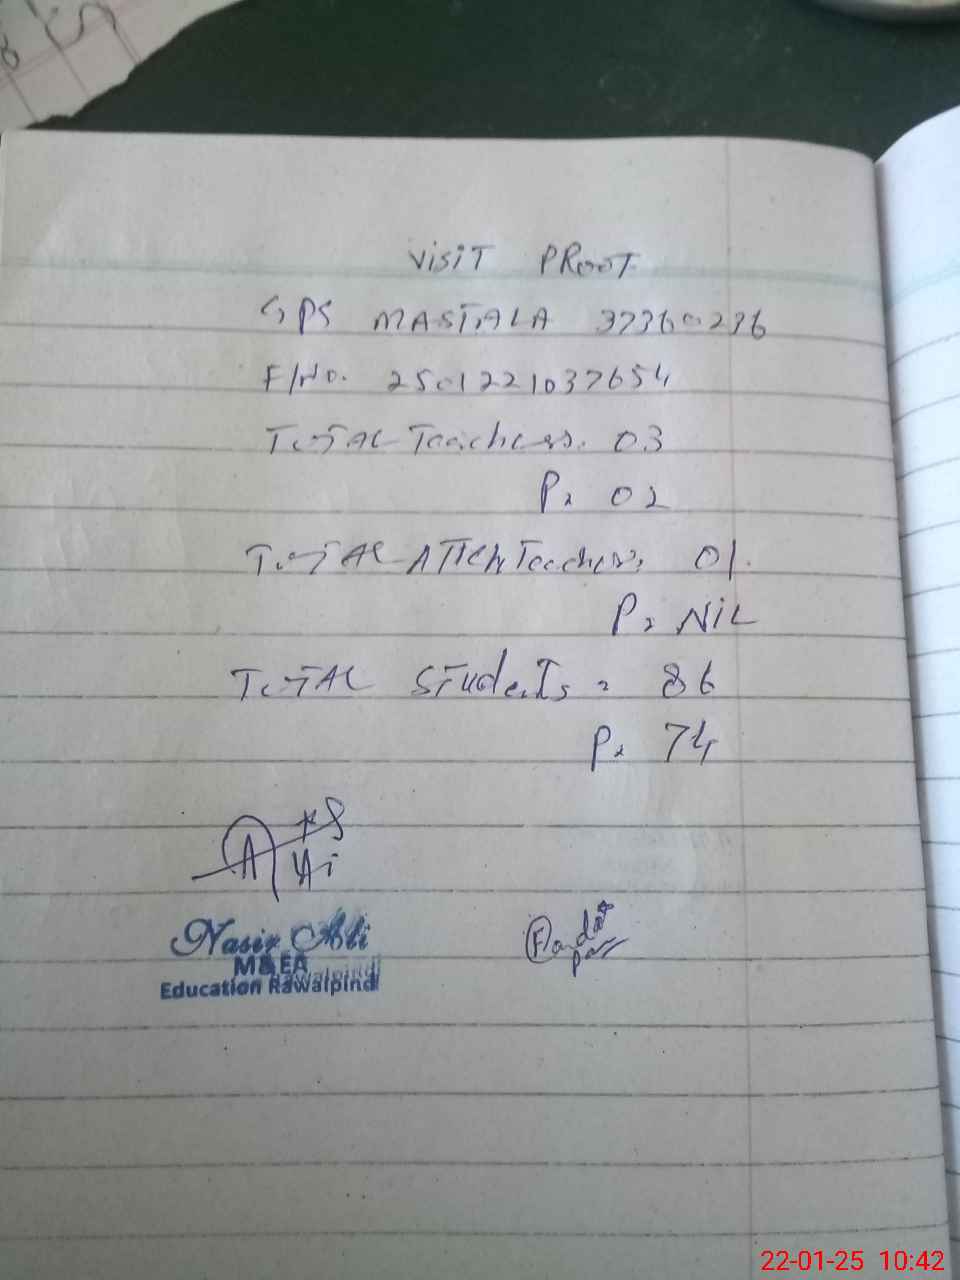 VISIT PROOF
GPS MASTALA 37360236
F/No. 2501221037654
TOTAL Teachers. 03
P= 02
TOTAL ATTCH Teachers= 01.
P= NIL
TOTAL STudenTs = 86
P= 74
Nasir Ali
M&EA
Education Rawalpindi
22-01-25 10:42